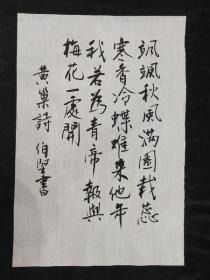 颯颯秋風滿園栽蕊
寒香冷蝶難來他年
我若為青帝報與
梅花一處開
黃巢詩 伯堅書